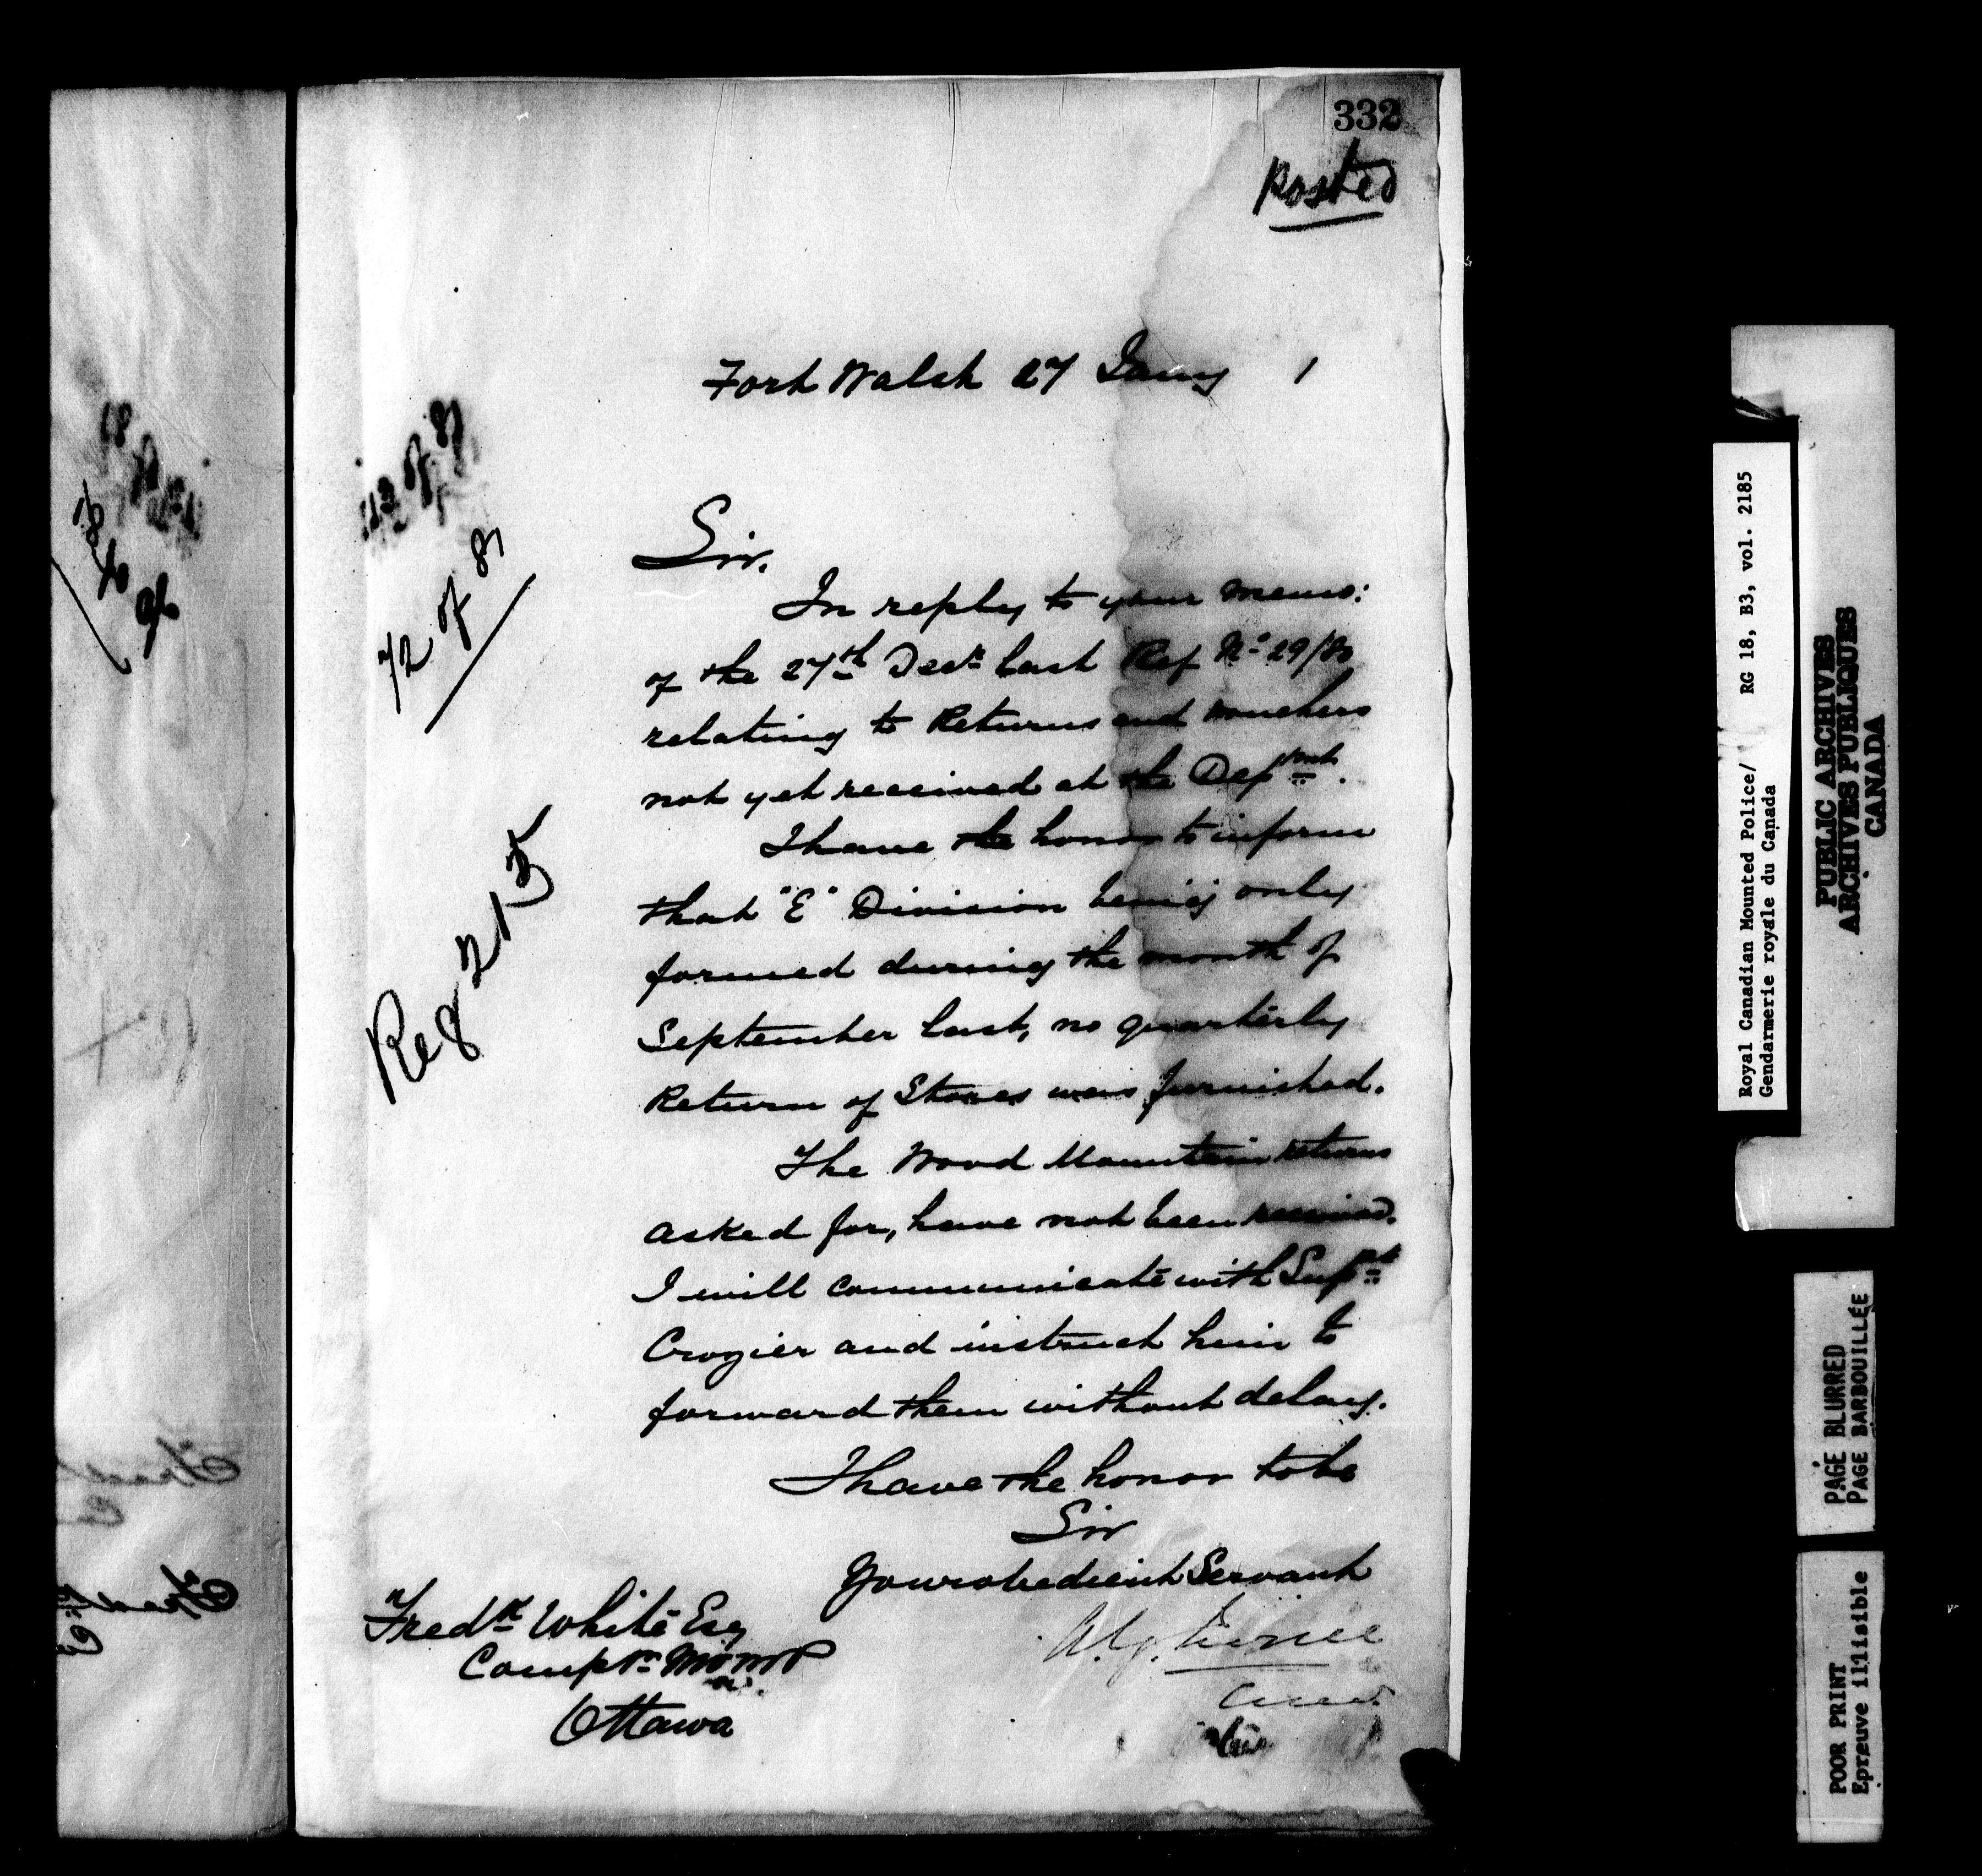 332
Posted
Fort Walsh 27 Jany 1
113 of 81
72 of 81
Reg 215
Sir.
In reply to your memo:
of the 27th Decr last Ref No 29/80
relating to Returns and Vouchers
not yet received at the Depmt.
I have the honor to inform
that "E" Division being only
formed during the month of
September last, no quarterly
Return of Stores was furnished.
The Wood Mountain returns
asked for, have not been received.
I will communicate with Supt
Crozier and instruct him to
forward them without delay.
I have the honor to be
Sir
Your obedient Servant
A.G. Irvine
Fredk White Esq
Comptr
Ottawa
Royal Canadian Mounted Police/ RG 18, B3, vol. 2185
Gendarmerie royale du Canada
PUBLIC ARCHIVES
ARCHIVES PUBLIQUES
CANADA
PAGE BLURRED
PAGE BARBOUILLÉE
POOR PRINT
Epreuve illisible